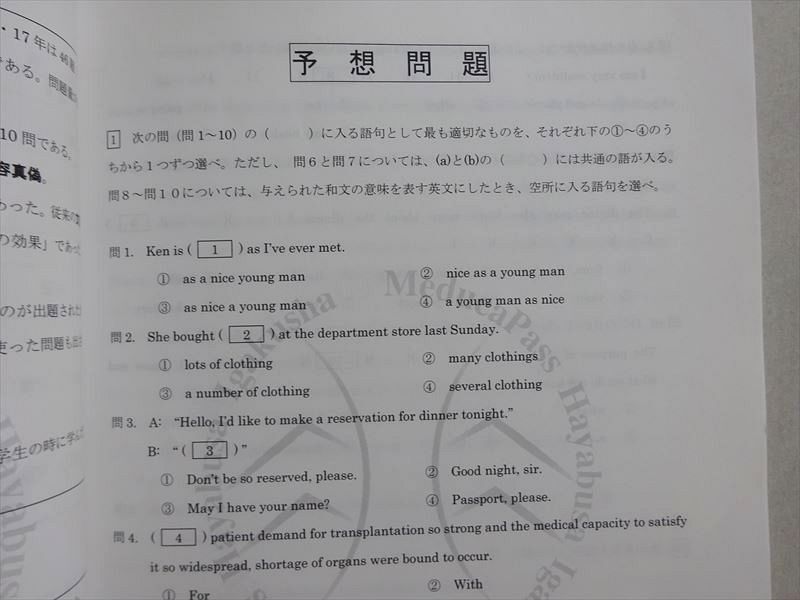 ・17年は46題
である。問題量
10問である。
容真偽。
わった。従来の
の効果」であっ
のが出題された
使った問題も出
学生の時に学ん
予想問題
1 次の問（問1～10）の（　　）に入る語句として最も適切なものを、それぞれ下の①～④のう
ちから1つずつ選べ。ただし、問6と問7については、(a)と(b)の（　　）には共通の語が入る。
問8～問10については、与えられた和文の意味を表す英文にしたとき、空所に入る語句を選べ。
問1. Ken is ( 1 ) as I've ever met.
① as a nice young man ② nice as a young man
③ as nice a young man ④ a young man as nice
問2. She bought ( 2 ) at the department store last Sunday.
① lots of clothing ② many clothings
③ a number of clothing ④ several clothing
問3. A: “Hello, I'd like to make a reservation for dinner tonight.”
B: “( 3 )”
① Don't be so reserved, please. ② Good night, sir.
③ May I have your name? ④ Passport, please.
問4. ( 4 ) patient demand for transplantation so strong and the medical capacity to satisfy
it so widespread, shortage of organs were bound to occur.
① For ② With
MeducaPass Hayabusa Igakusha
Hayabusa